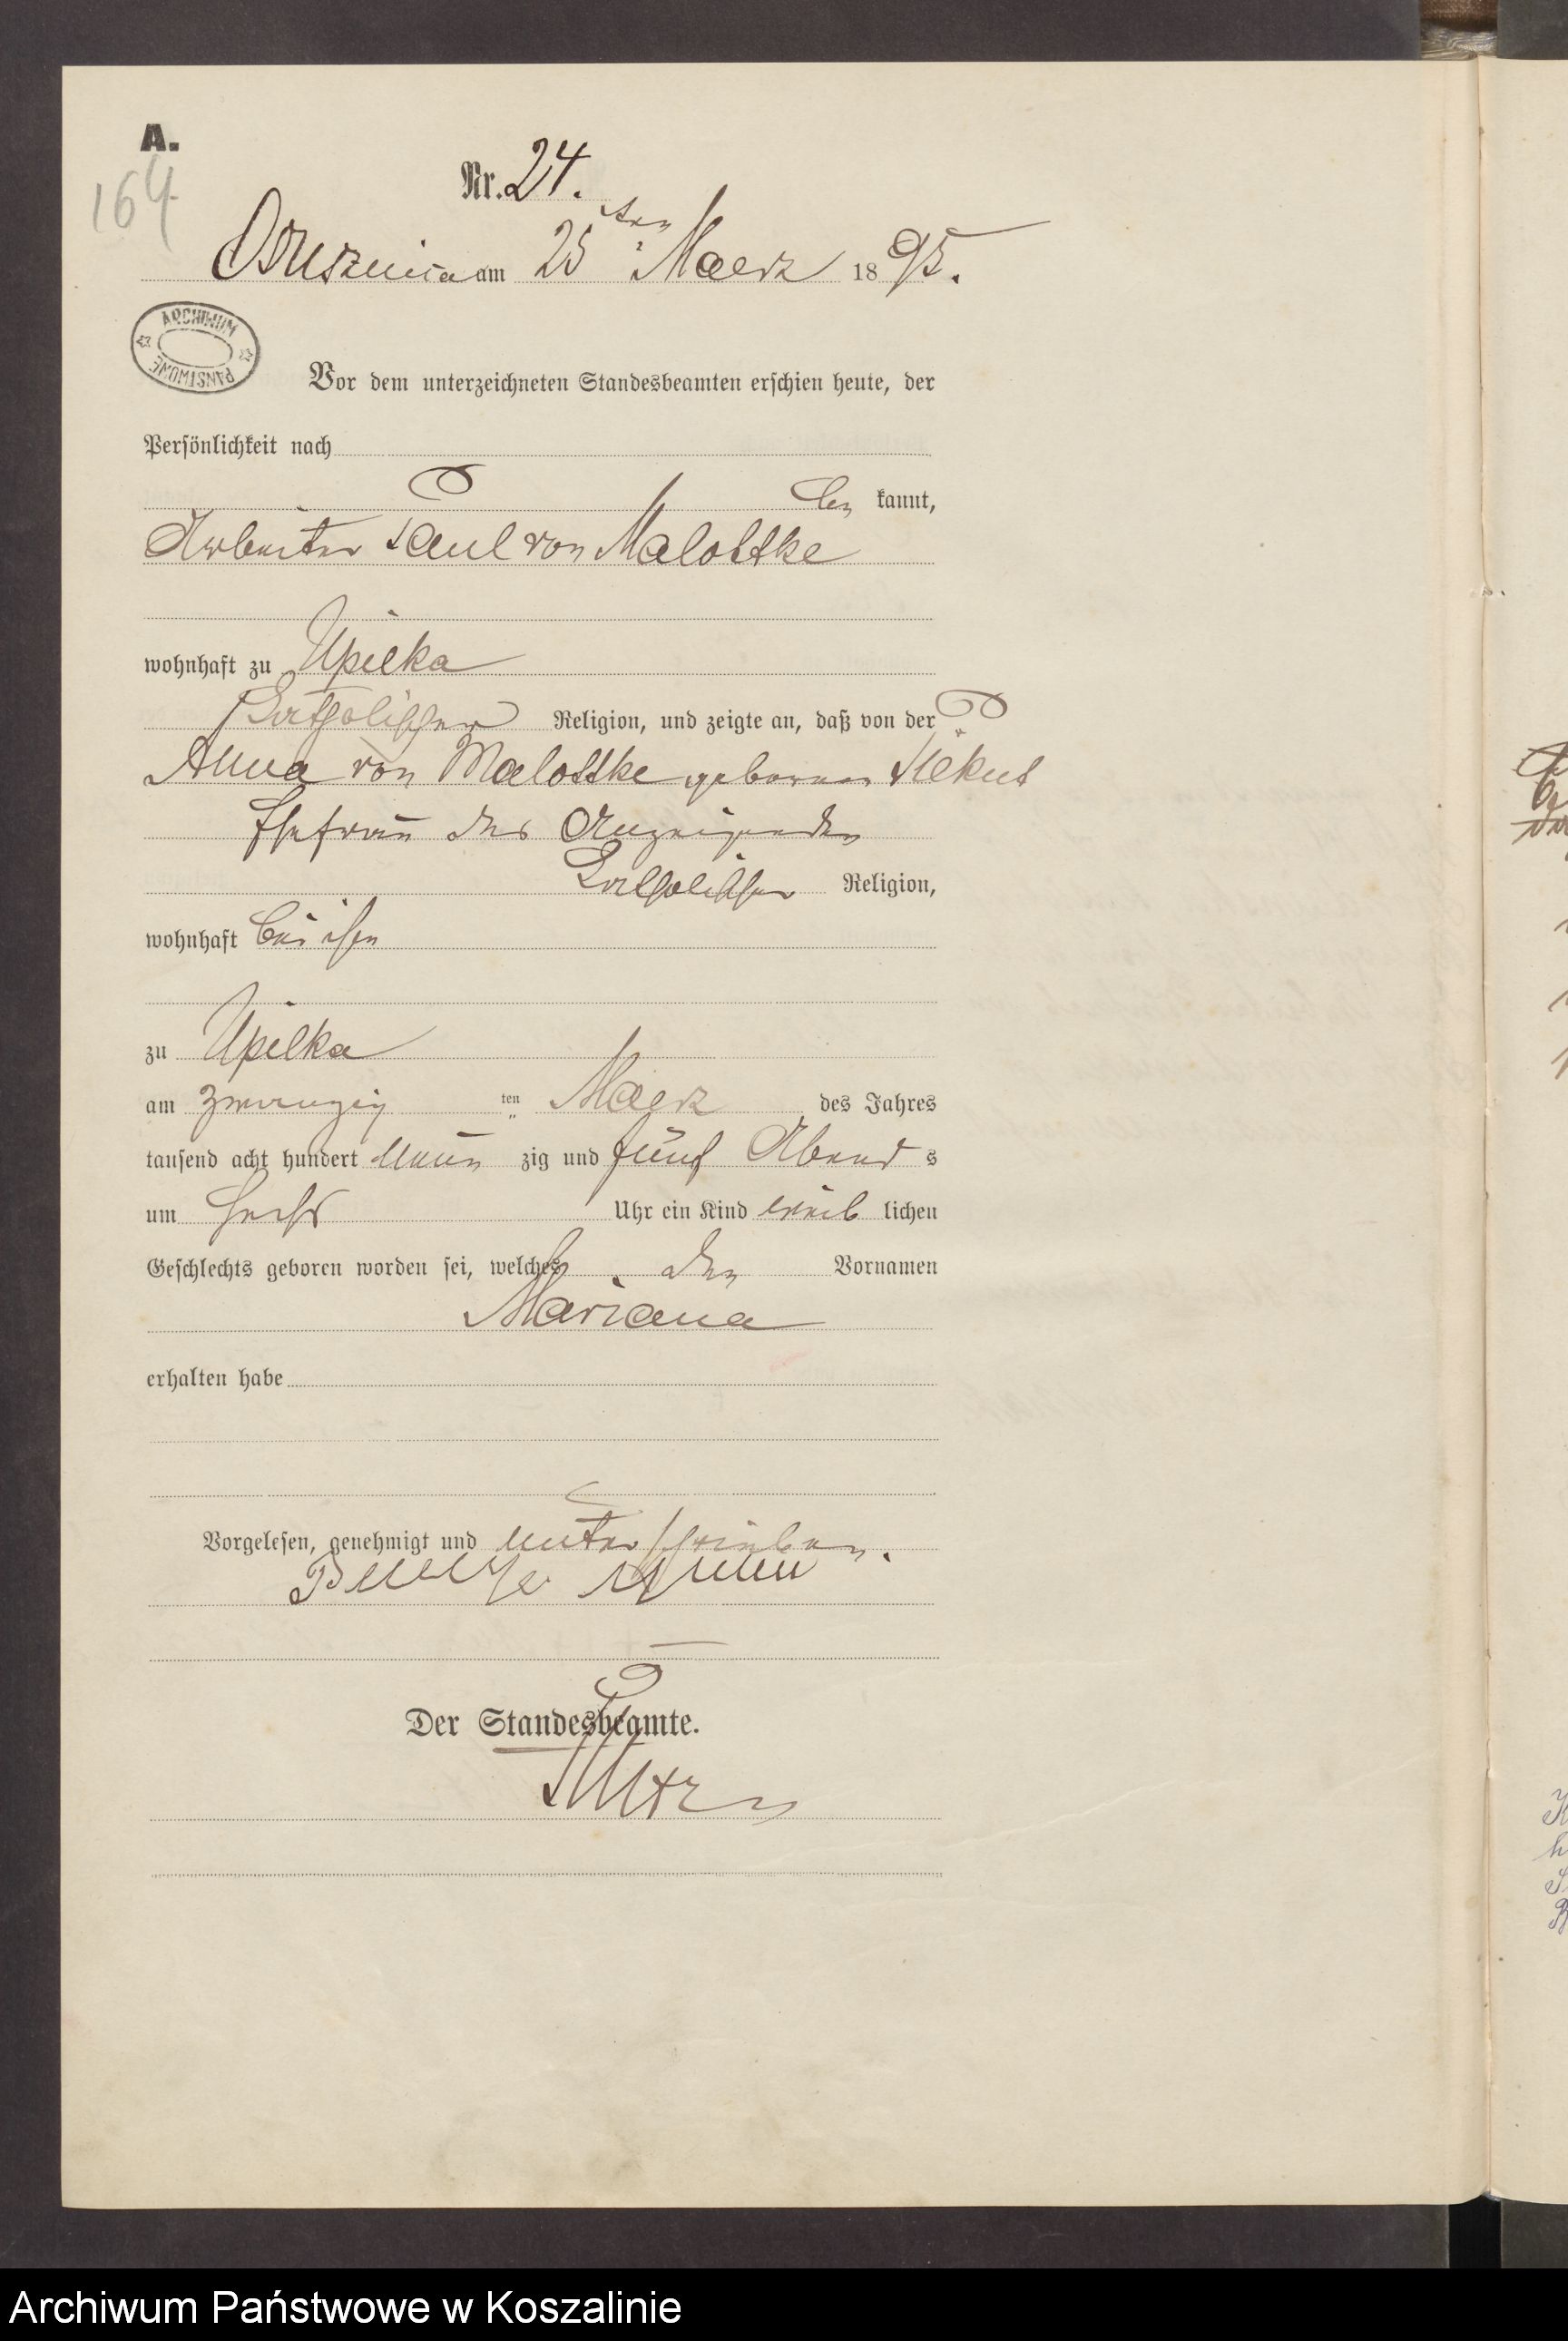 A.
164
Nr. 24.
am 25ten Maerz 1895.
ARCHIWUM
PAŃSTWOWE
Vor dem unterzeichneten Standesbeamten erschien heute, der
Persönlichkeit nach
be kannt,
Arbeiter Paul von Malottke
wohnhaft zu Upilka
katholischer Religion, und zeigte an, daß von der
Anna von Malottke geborenen
Ehefrau des Anzeigenden
katholischer Religion,
wohnhaft bei ihm
zu Upilka
am zwanzig ten Maerz des Jahres
tausend acht hundert neun zig und fünf Abend s
um sechs Uhr ein Kind weib lichen
Geschlechts geboren worden sei, welches den Vornamen
Mariana
erhalten habe
Vorgelesen, genehmigt und unterschrieben.
Der Standesbeamte.
Archiwum Państwowe w Koszalinie